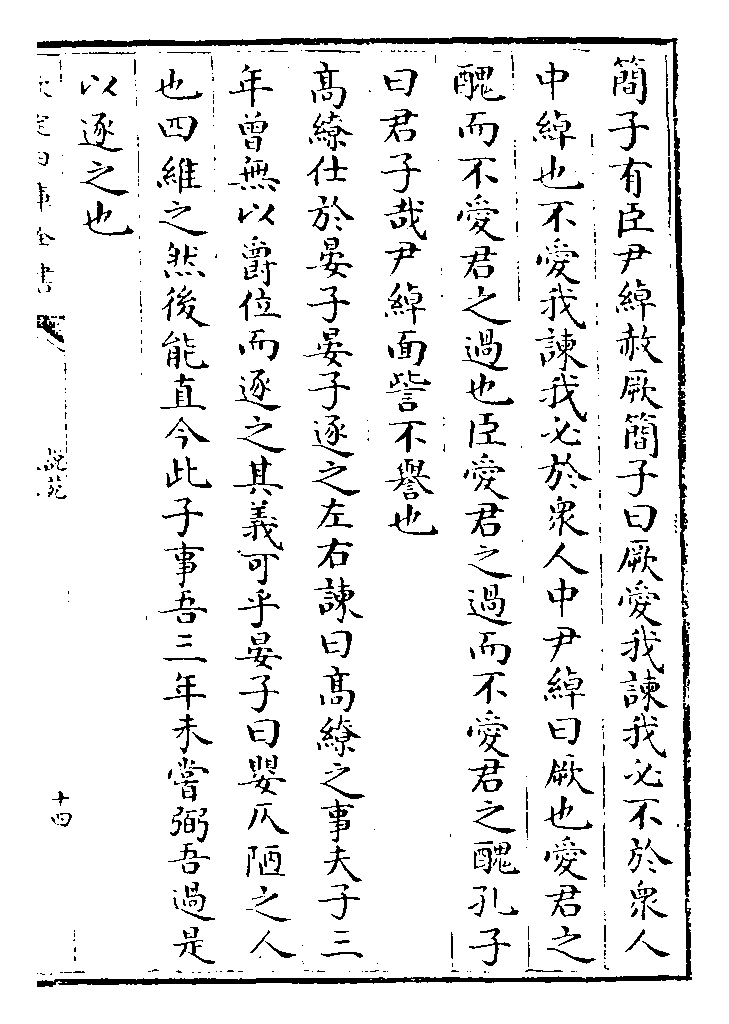 簡子有臣尹綽赦厥簡子曰厥愛我諫我必不於衆人
中綽也不愛我諫我必於衆人中尹綽曰厥也愛君之
醜而不愛君之過也臣愛君之過而不愛君之醜孔子
曰君子哉尹綽面訾不譽也
高繚仕於晏子晏子逐之左右諫曰高繚之事夫子三
年曾無以爵位而逐之其義可乎晏子曰嬰仄陋之人
也四維之然後能直今此子事吾三年未嘗弼吾過是
以逐之也
欽定四庫全書
說苑
十四